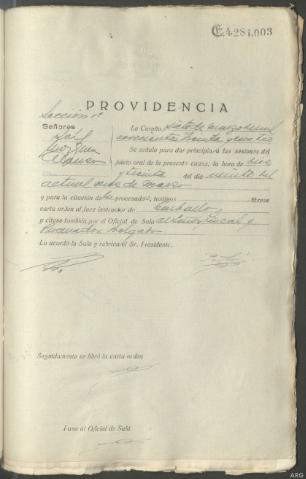 E.4281.003
PROVIDENCIA
Sección 1ª
Señores
La Coruña, siete de marzo de mil
novecientos treinta y
Se señala para dar principio a las sesiones del
juicio oral de la presente causa, la hora de diez
y treinta del día veinte del
actual mes de marzo
y para la citación de procesados, testigos líbrese
carta orden al Juez instructor de Carballo
y cítese también por el Oficial de Sala al Señor Fiscal y
Procurador Abogado
Lo acordó la Sala y rubrica el Sr. Presidente.
Seguidamente se libró la carta orden
Tuno el Oficial de Sala
ARG